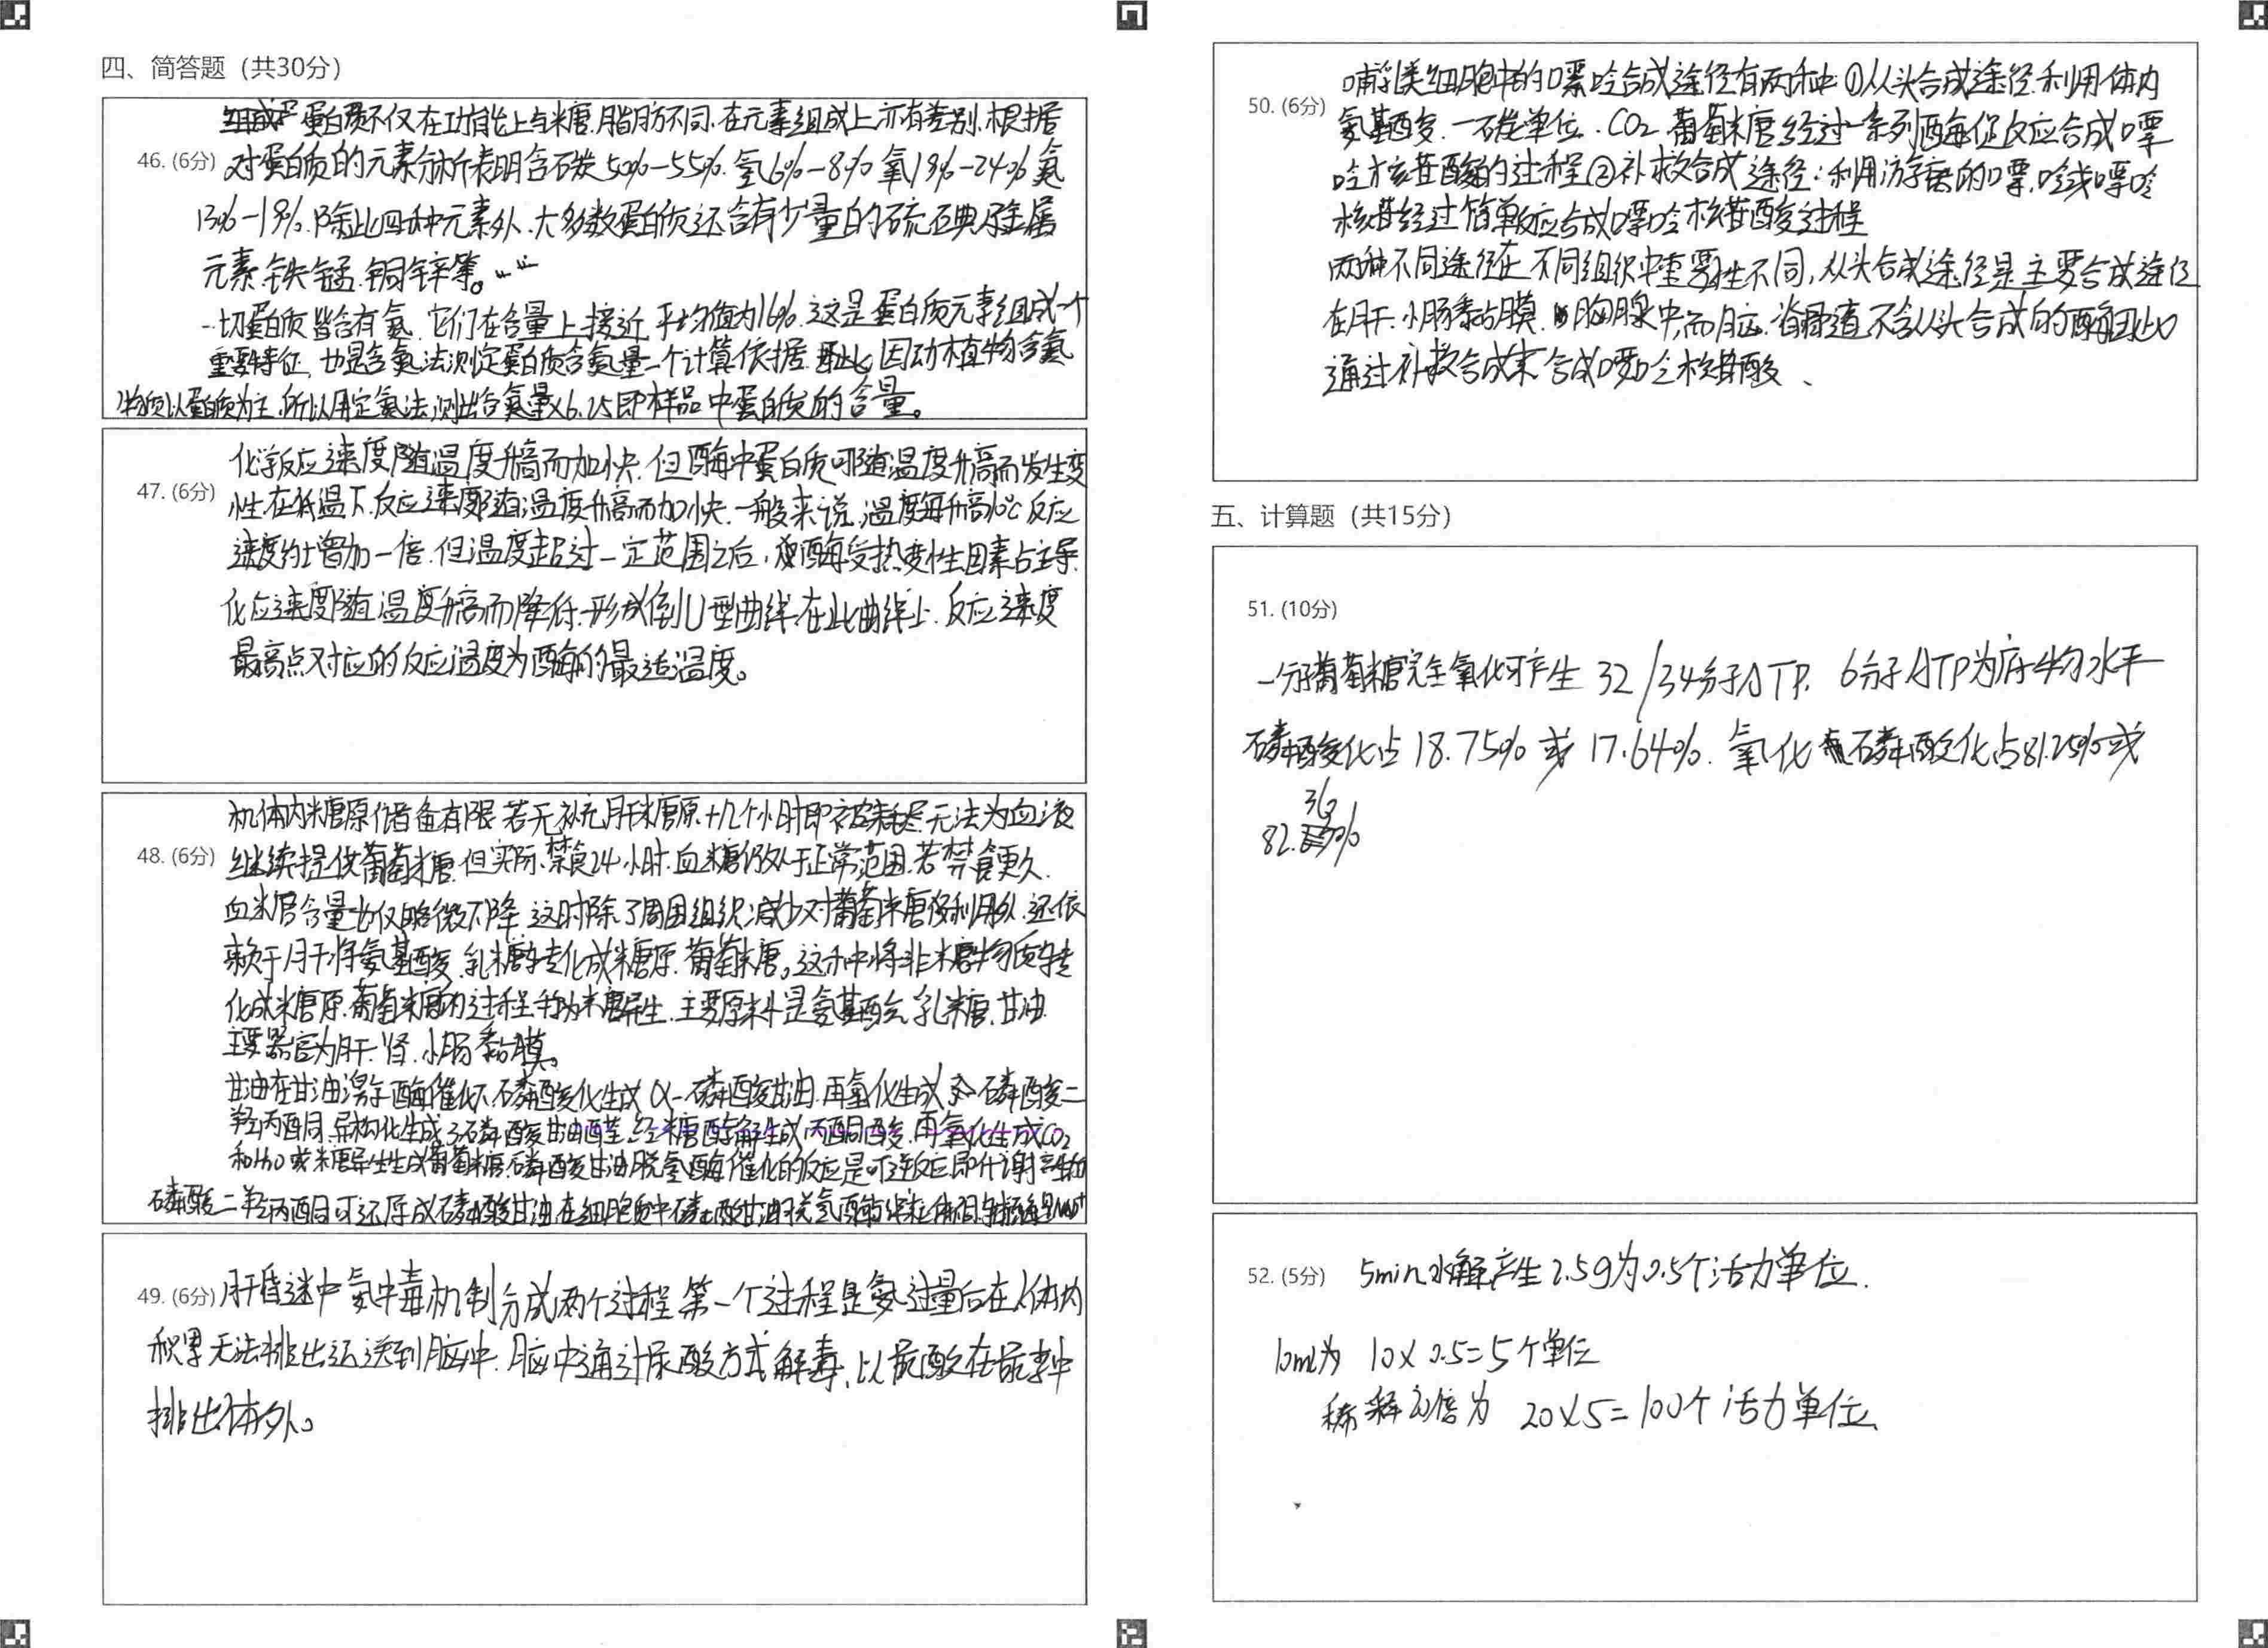 四、简答题（共30分）
蛋白质不仅在功能上与糖.脂肪不同.在元素组成上亦有差别.根据
46. (6分) 对蛋白质的元素分析表明含碳50%-55%.氢6%-8% 氧19%-24% 氮
13%-19%.除此四种元素外.大多数蛋白质还含有少量的硫.碘及金属
元素.铁.锰.铜锌等。
一切蛋白质皆含有氮.它们在含量上接近.平均值为16%.这是蛋白质元素组成一个
重要特征,也是含氮法测定蛋白质含氮量一个计算依据.因动植物含氮
物质以蛋白质为主.所以用定氮法测出含氮量×6.25即样品中蛋白质的含量。
化学反应速度随温度升高而加快.但酶中蛋白质可随温度升高而发生变
47. (6分) 性.在低温下.反应速度随温度升高而加快.一般来说.温度每升高10℃反应
速度约增加一倍.但温度超过一定范围之后,酶受热变性因素占主导.
化应速度随温度升高而降低.形成倒U型曲线.在此曲线上.反应速度
最高点对应的反应温度为酶的最适温度。
机体内糖原储备有限.若无补充.肝糖原十几个小时即被耗尽.无法为血液
48. (6分) 继续提供葡萄糖.但实际.禁食24小时.血糖仍处于正常范围.若禁食更久.
血糖含量也仅略微下降.这时除了周围组织减少对葡萄糖的利用外.还依
赖于肝将氨基酸.乳糖转化成糖原.葡萄糖。这种将非糖物质转
化成糖原.葡萄糖的过程称为糖异生.主要原料是氨基酸.乳糖.甘油.
主要器官为肝.肾.小肠黏膜。
甘油在甘油激酶催化下.磷酸化生成α-磷酸甘油.再氧化生成磷酸二
羟丙酮.异构化生成3磷酸甘油醛.经糖酵解生成丙酮酸.再氧化生成CO2
和H2O或糖异生生成葡萄糖.磷酸甘油脱氢酶催化的反应是可逆反应即代谢产物
磷酸二羟丙酮可还原成磷酸甘油在细胞质中磷酸甘油脱氢酶
49. (6分) 肝昏迷中氨中毒机制分成两个过程.第一个过程是氨过量后在人体内
积累无法排出运送到脑中.脑中通过尿酸方式解毒,以尿酸在尿素中
排出体外。
哺乳类细胞中的嘌呤合成途径有两种:①从头合成途径.利用体内
50. (6分) 氨基酸.一碳单位.CO2.葡萄糖经过一系列酶促反应合成嘌
呤核苷酸的过程②补救合成途径:利用游离的嘌呤或嘌呤
核苷经过简单反应合成嘌呤核苷酸过程
两种不同途径在不同组织中重要性不同,从头合成途径是主要合成途径
在肝.小肠黏膜.胸腺中,而脑.脊髓不含从头合成的酶因此
通过补救合成来合成嘌呤核苷酸、
五、计算题（共15分）
51. (10分)
一分子葡萄糖完全氧化可产生32/34分子ATP. 6分子ATP为底物水平
磷酸化占18.75%或17.64%.氧化磷酸化占81.25%或
82.36%
52. (5分) 5min水解产生2.5g为0.5个活力单位.
10ml为 10×0.5=5个单位
稀释20倍为 20×5=100个活力单位、